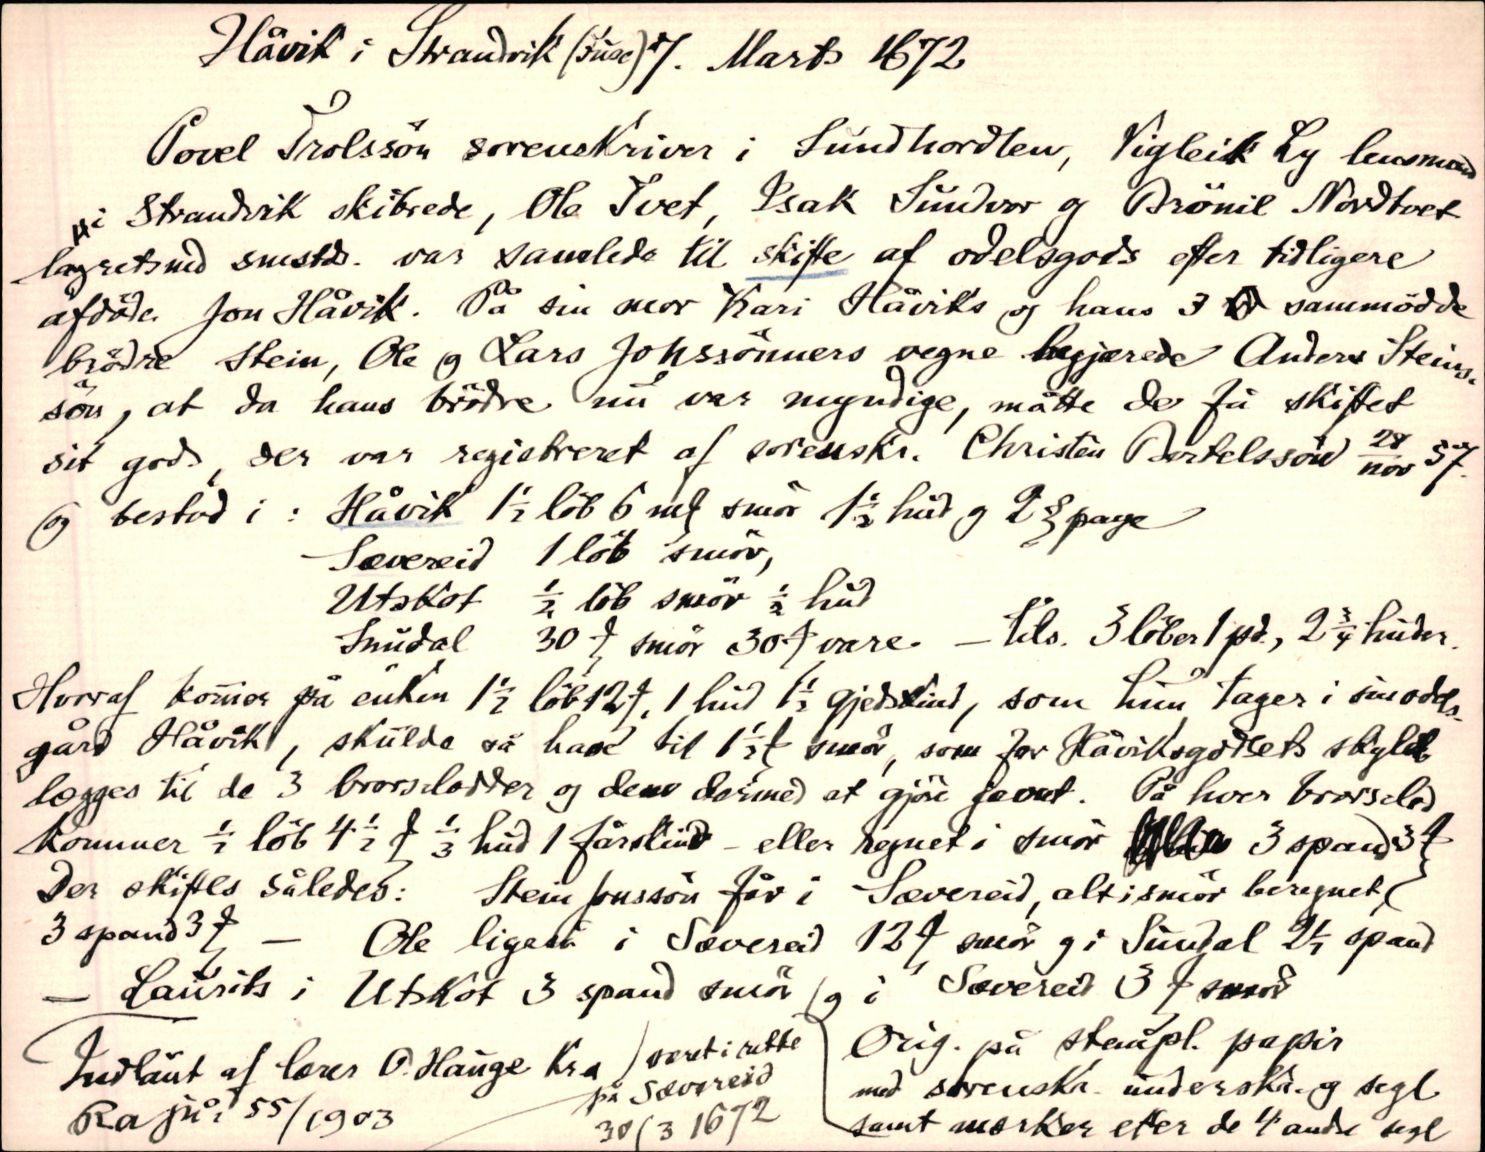 Håvik i Strandvik (Fuse) 7. Marts 1672
Povel Trolssön sorenskriver i Sundhordlen, Vigleik Ly lensmand
i Strandvik skibrede, Ole Tvet, Isak Sundvor og Brönil Nordtvet
lagretsmd smstds. var samlede til skifte af odelsgods efter tidligere
afdöde Jon Håvik. På sin mor Kari Håviks og hans 3 sammödde
brödre Stein, Ole og Lars Johssönners vegne begjærede Anders Steins-
sön, at da hans brödre nu var myndige, måtte de få skiftet
sit gods, der var registreret af sorenskr. Christen Bertelssön 28/nov 57.
og bestod i : Håvik 1½ löb 6 mℳ smör 1½ hud og 2 page
Sævereid 1 löb smör,
Utskot ½ löb smör ½ hud
Sundal 30 ℳ smör 30 ℳ vare. – tils. 3 löber 1 pd., 2¾ huder.
Hvoraf kommer på enken 1½ löb 12 ℳ, 1 hud 1½ gjedskind, som hun tager i sin odels-
gård Håvik, skulde så have til 1½ ℳ smör, som for Håviksgodsets skyld
lægges til de 3 brorslodder og dem dermed at gjöre jevnt. På hver brorslod
kommer ½ löb 4½ ℳ ⅓ hud 1 fårskind – eller regnet i smör 3 spand 3 ℳ
Der skiftes således: Stein Jonssön får i Sævereid, alt i smör beregnet,
3 spand 3 ℳ – Ole ligeså i Sævereid 12 ℳ smör og i Sundal 2½ spand
– Laurits i Utskot 3 spand smör og i Sævereid 3 ℳ smör
Indlånt af lærer O. Hauge Kra
Ra jn: 55/1903
været i rette
på Sævereid
30/3 1672
Orig. på stempl. papir
med sorenskr. underskr. og segl
samt merker efter de 4 andre segl